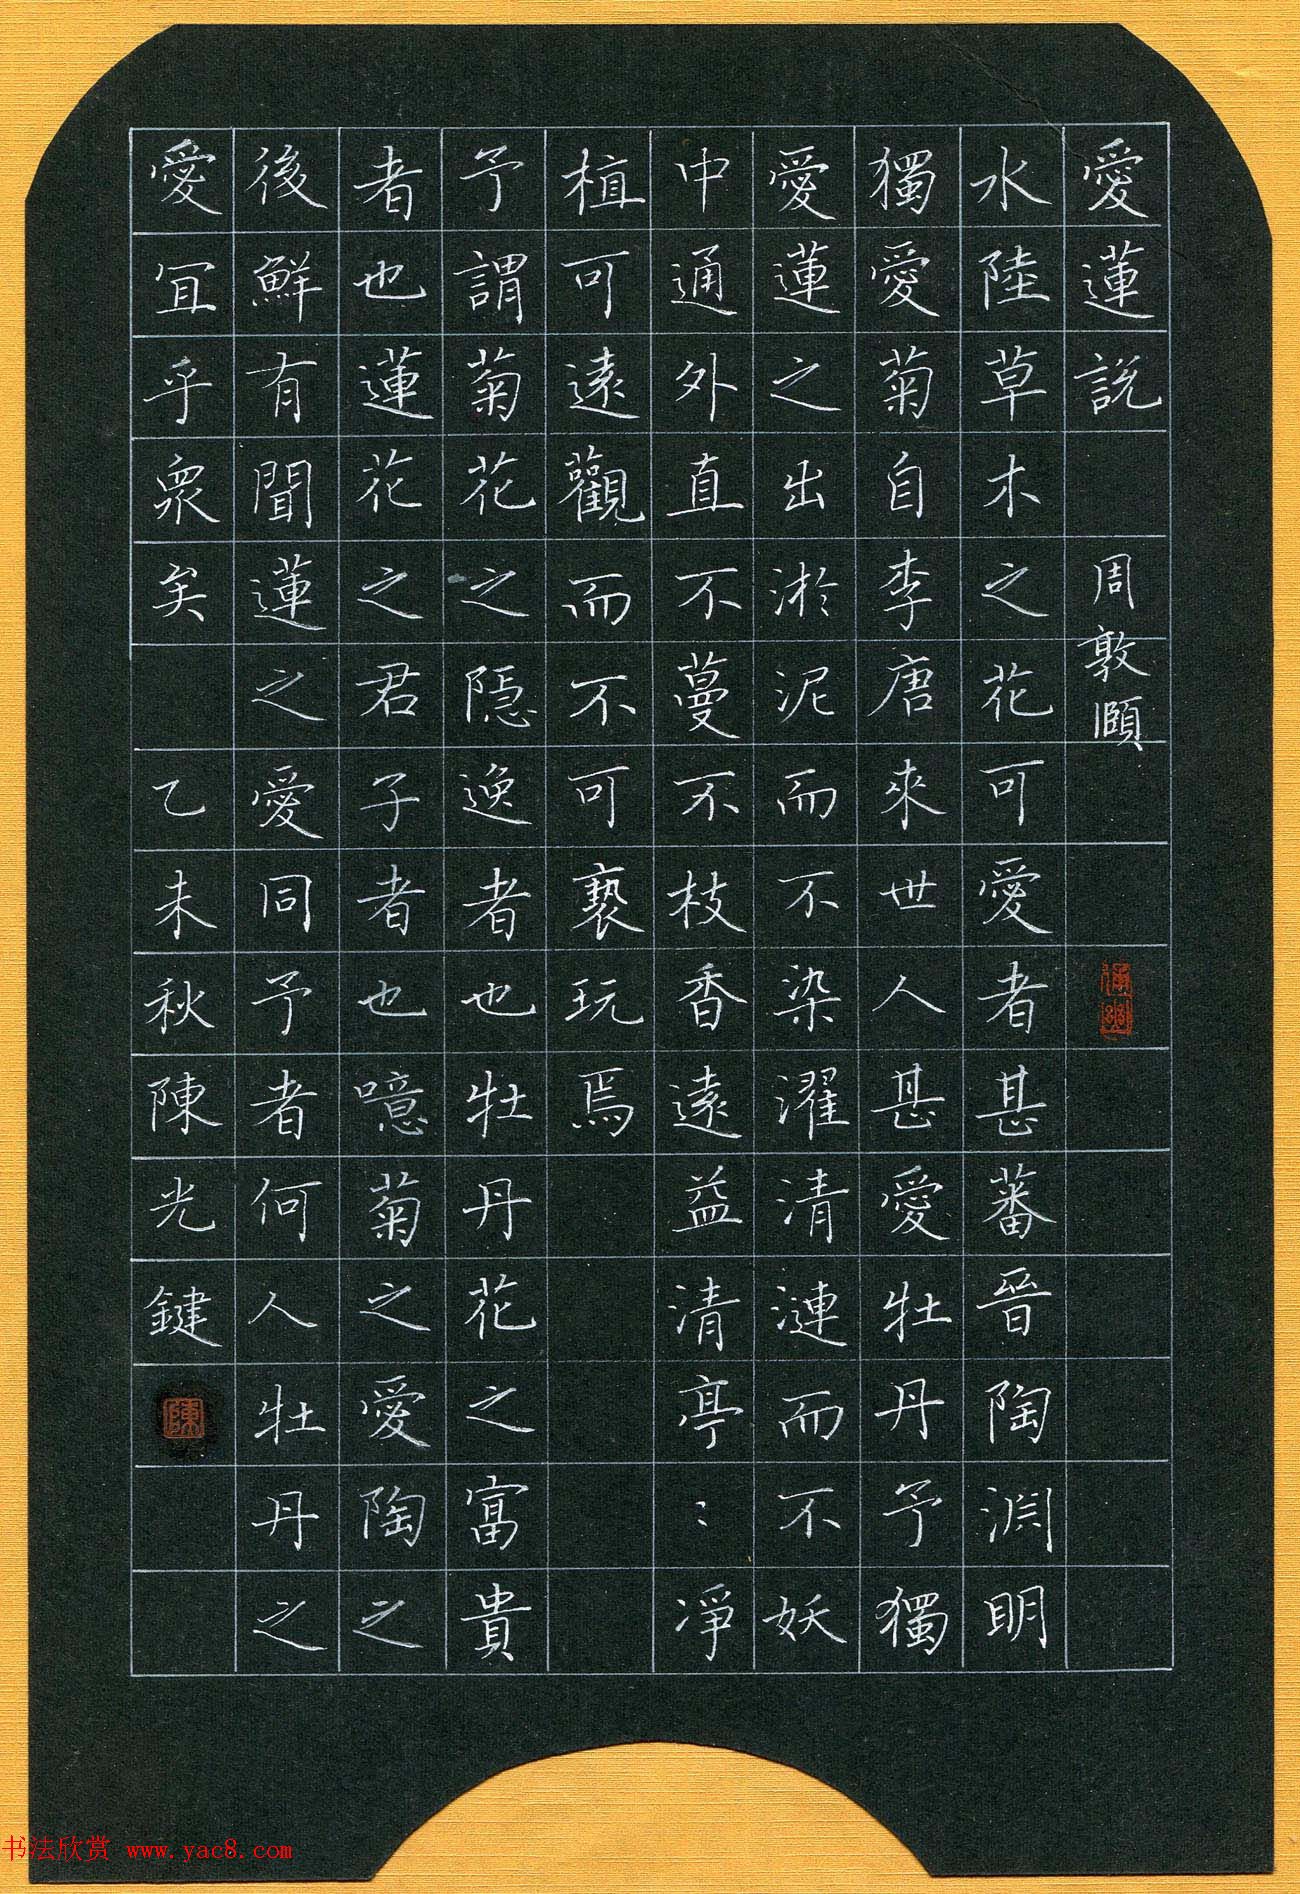 愛蓮說 周敦頤
水陸草木之花可愛者甚蕃晉陶淵明
獨愛菊自李唐來世人甚愛牡丹予獨
愛蓮之出淤泥而不染濯清漣而不妖
中通外直不蔓不枝香遠益清亭：淨
植可遠觀而不可褻玩焉
予謂菊花之隱逸者也牡丹花之富貴
者也蓮花之君子者也噫菊之愛陶之
後鮮有聞蓮之愛同予者何人牡丹之
愛宜乎衆矣 乙未秋陳光鍵
陳
书法欣赏 www.yac8.com